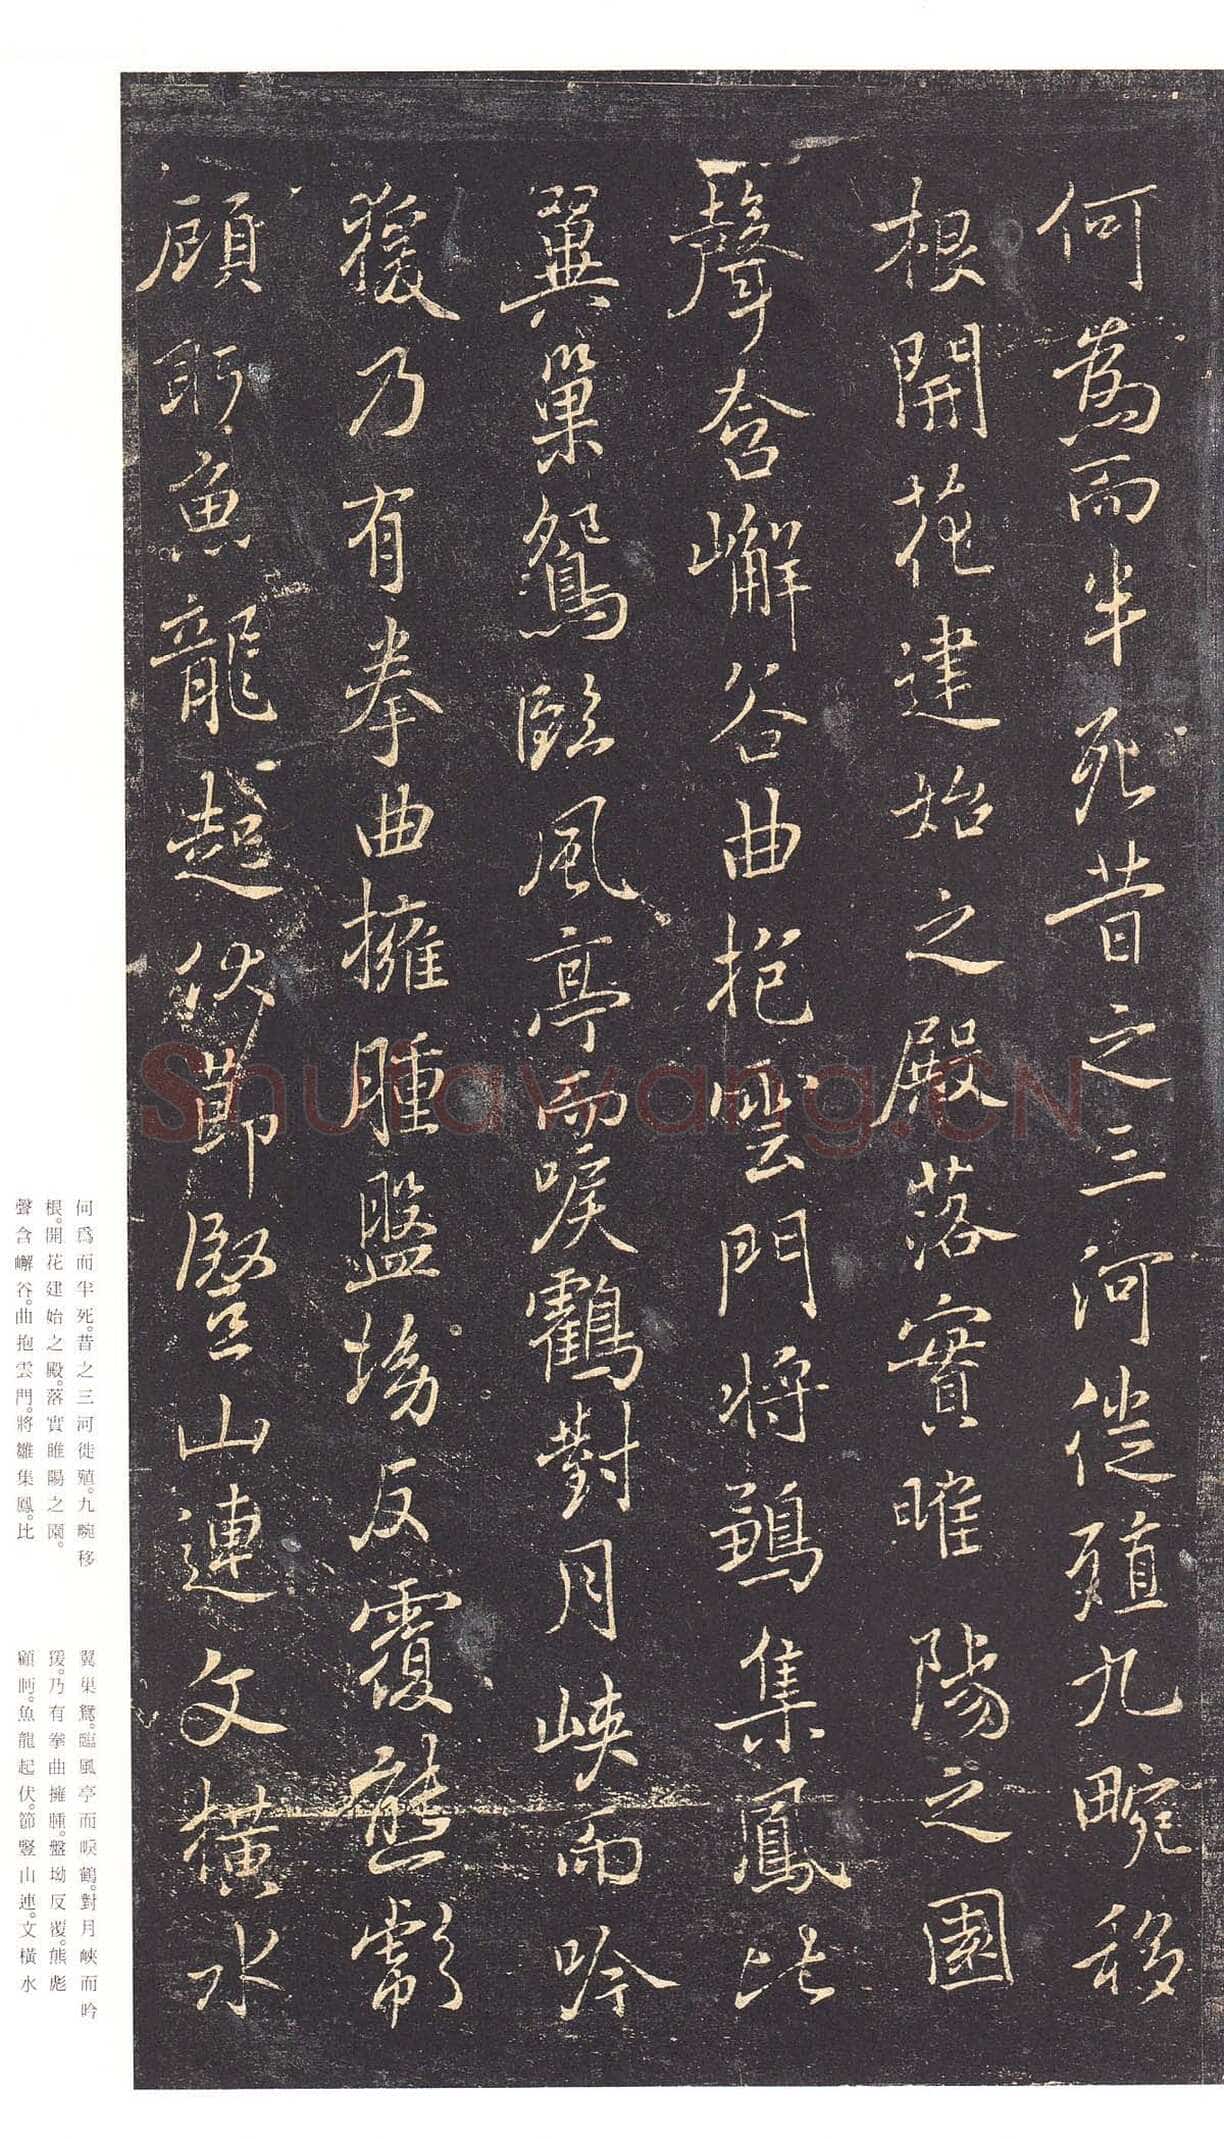 何為而半死昔之三河徙殖九畹移
根開花建始之殿落實睢陽之園
聲含嶰谷曲抱雲門將鶵集鳳比
翼巢鴛臨風亭而唳鶴對月峽而吟
猨乃有拳曲擁腫盤坳反覆熊彪
顧盻魚龍起伏節豎山連文橫水
Shufawang.CN
何爲而半死。昔之三河徙殖。九畹移
根。開花建始之殿。落實睢陽之園。
聲含嶰谷。曲抱雲門。將雛集鳳。比
翼巢鴛。臨風亭而唳鶴。對月峽而吟
猨。乃有拳曲擁腫。盤坳反覆。熊彪
顧眄。魚龍起伏。節豎山連。文橫水